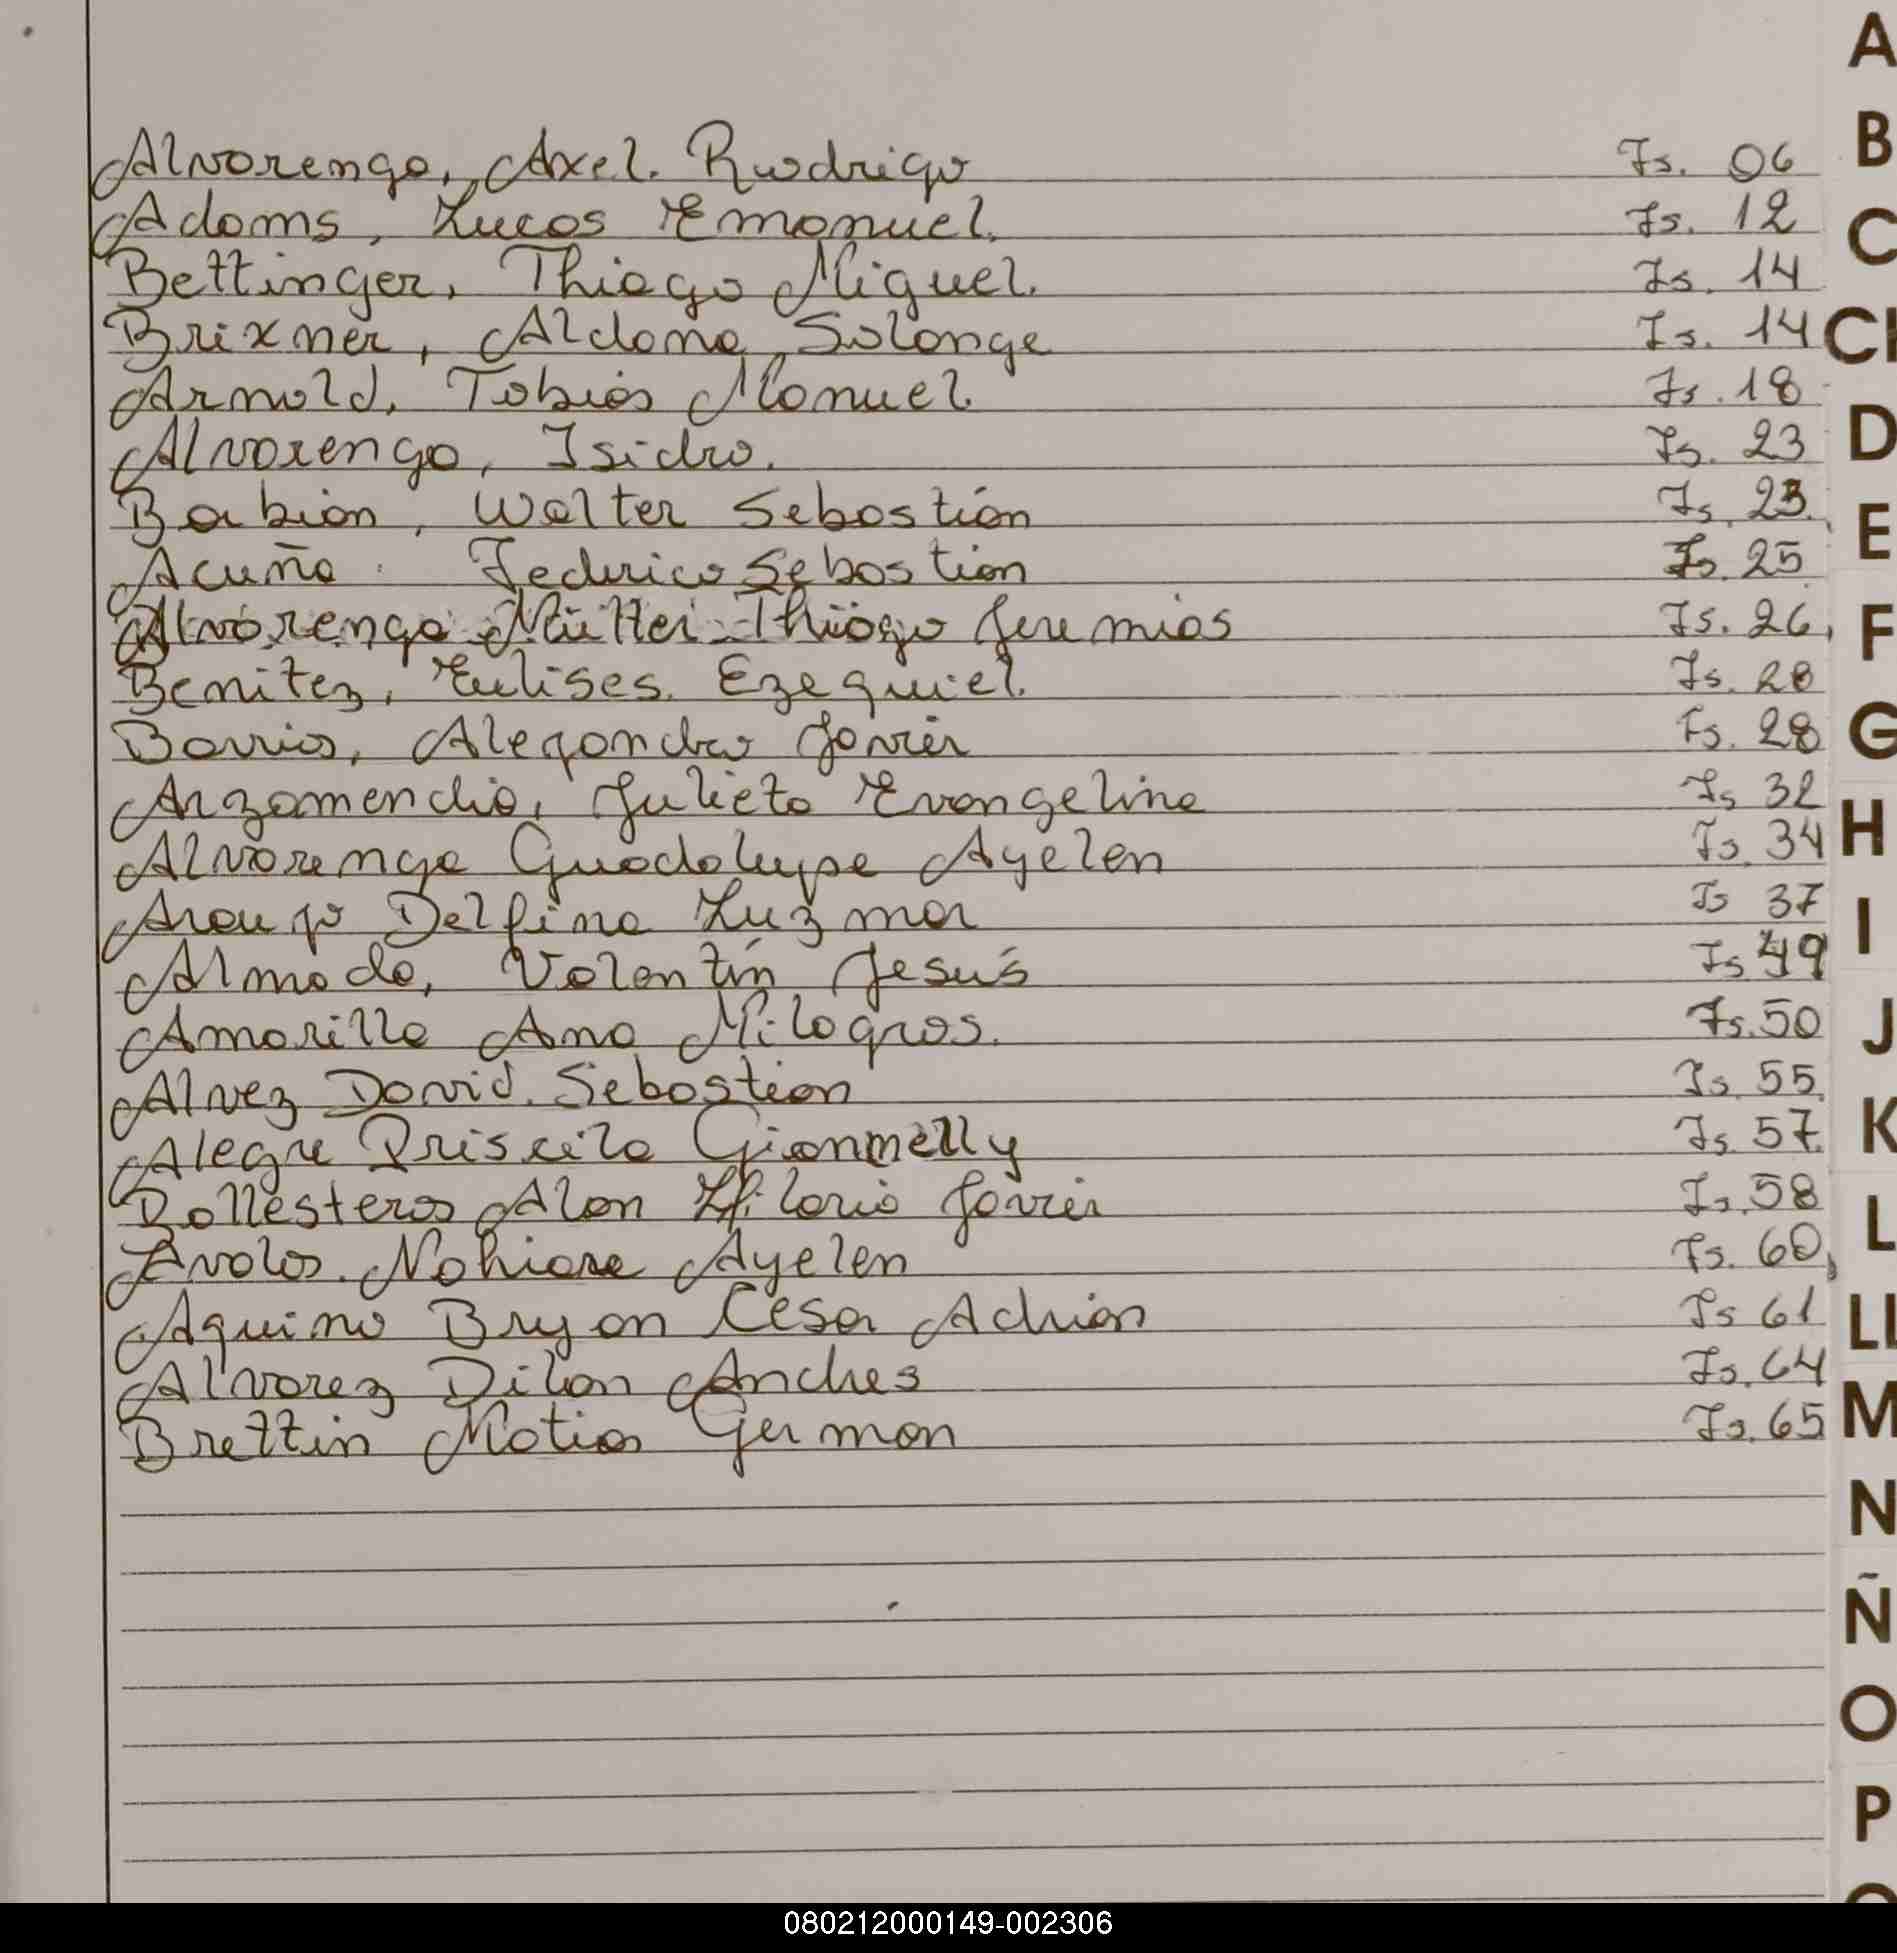 Alvarenga, Axel. Rodrigo Fs. 06
Adams, Lucas Emanuel. Fs. 12
Bettinger, Thiago Miguel. Fs. 14
Brixner, Aldana Solange Fs. 14
Arnold, Tobias Manuel. Fs. 18
Alvarenga, Isidro. Fs. 23
Babian, Walter Sebastián Fs. 23
Acuña Federico Sebastian Fs. 25
Alvarenga Müller Thiago Jeremias Fs. 26
Benitez, Eulises. Ezequiel. Fs. 28
Barrios, Alejandro Javier Fs. 28
Arzamendia, Julieta Evangelina Fs 32
Alvarenga Guadalupe Ayelen Fs. 34
Araujo Delfina Luz mar Fs 37
Almada, Valentín Jesús Fs 49
Amarilla Ana Milagros. Fs. 50
Alvez David. Sebastian Fs. 55
Alegre Priscila Gianmelly Fs. 57
Ballesteros Alan Hilario Javier Fs. 58
Avalos. Nahiara Ayelen Fs. 60
Aquino Bryan Cesar Adrian Fs 61
Alvarez Dilan Andres Fs. 64
Brettin Matias German Fs. 65
A
B
C
D
E
F
G
H
I
J
K
L
M
N
Ñ
O
P
080212000149-002306